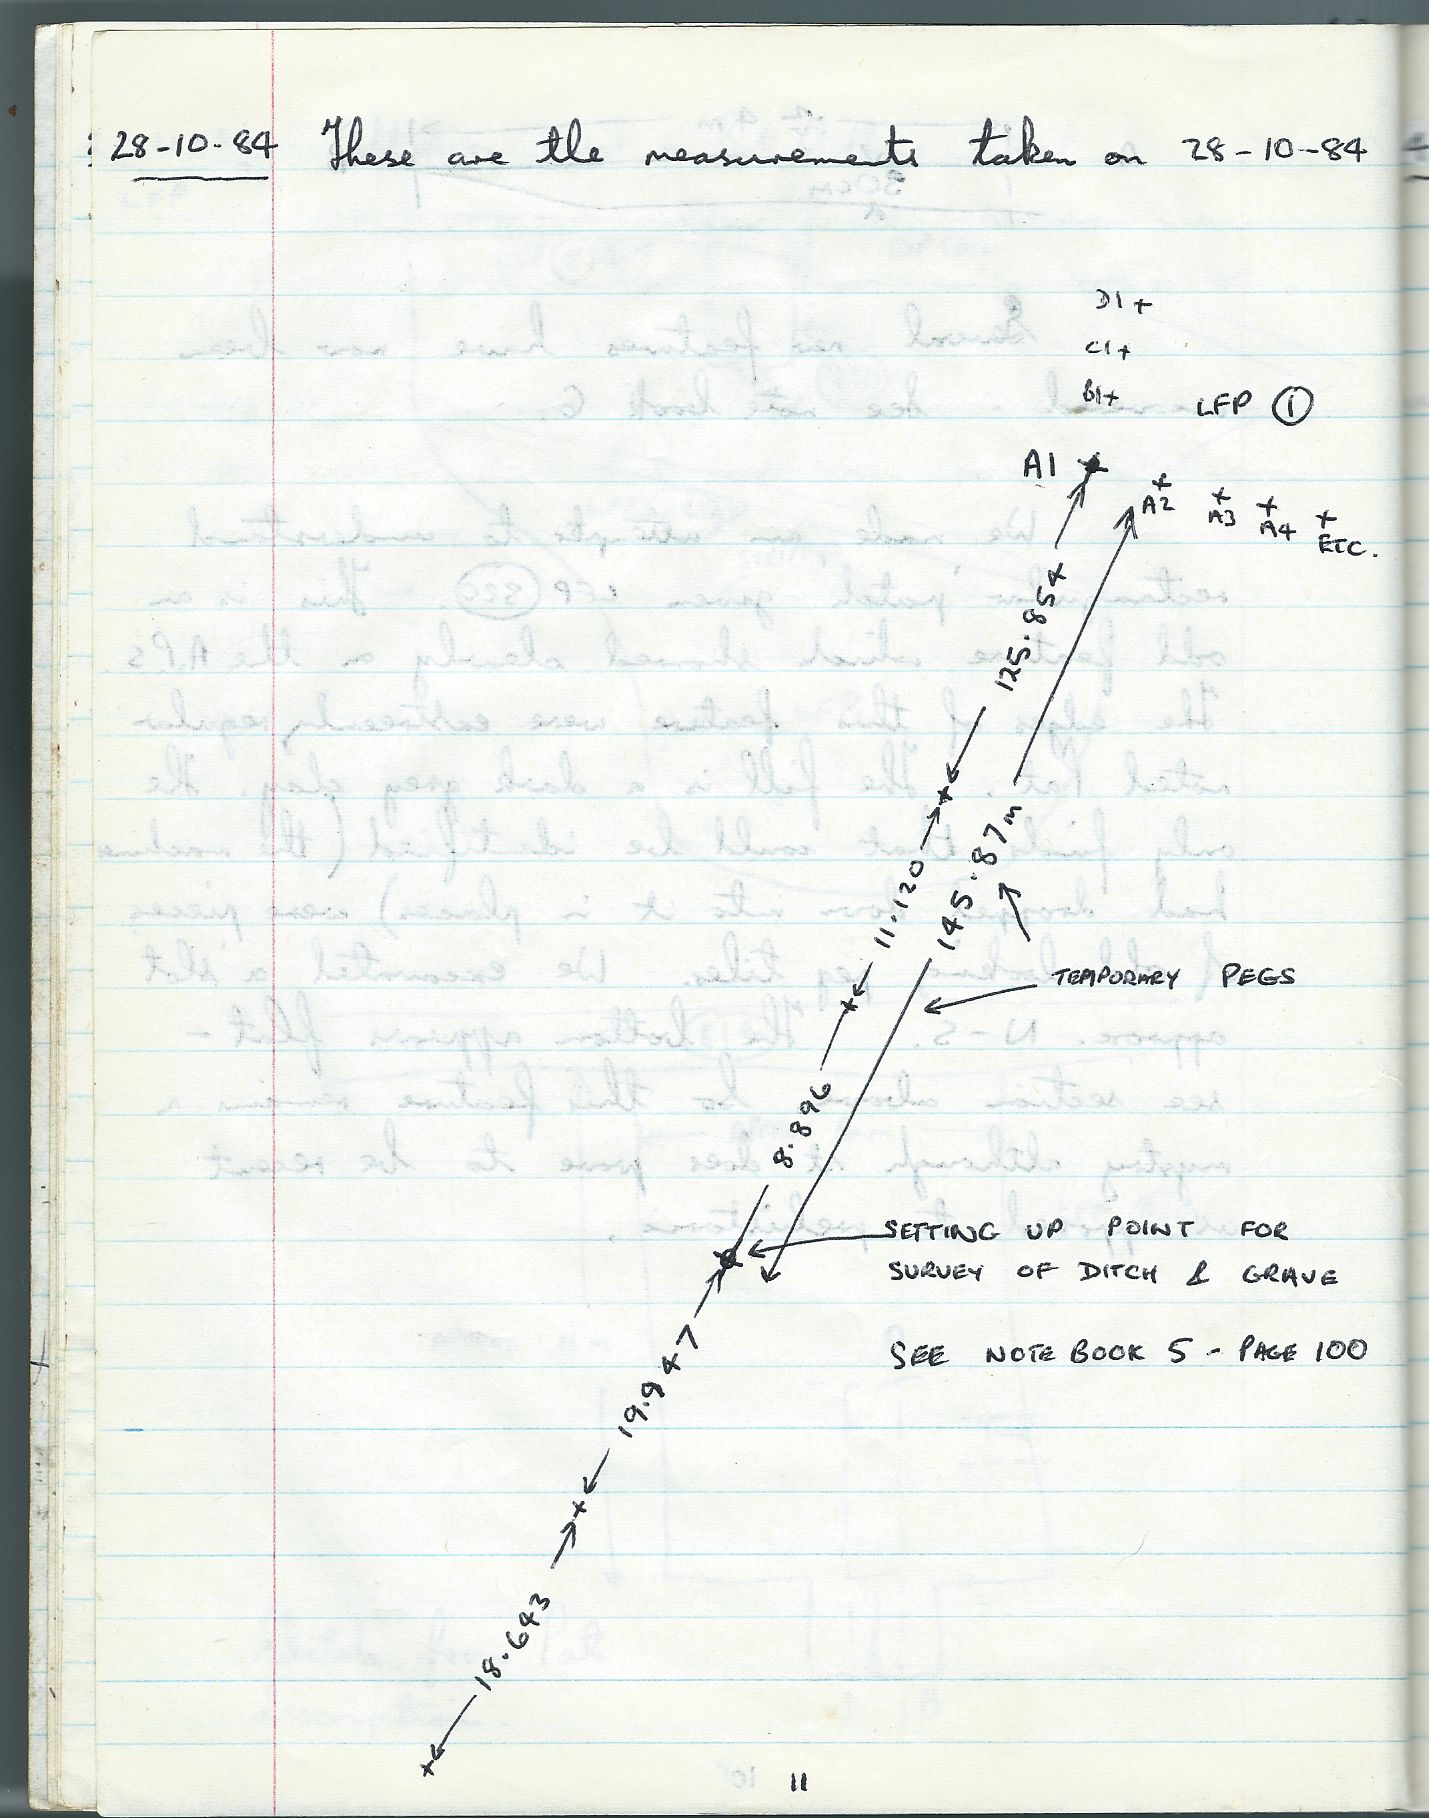 28-10-84 These are the measurements taken on 28-10-84
D1+
C1+
B1+ LFP ①
A1
A2
A3
A4
ETC.
125.854
11.120
145.87m
TEMPORARY PEGS
8.896
SETTING UP POINT FOR
SURVEY OF DITCH & GRAVE
19.947
SEE NOTE BOOK 5 - PAGE 100
18.643
11